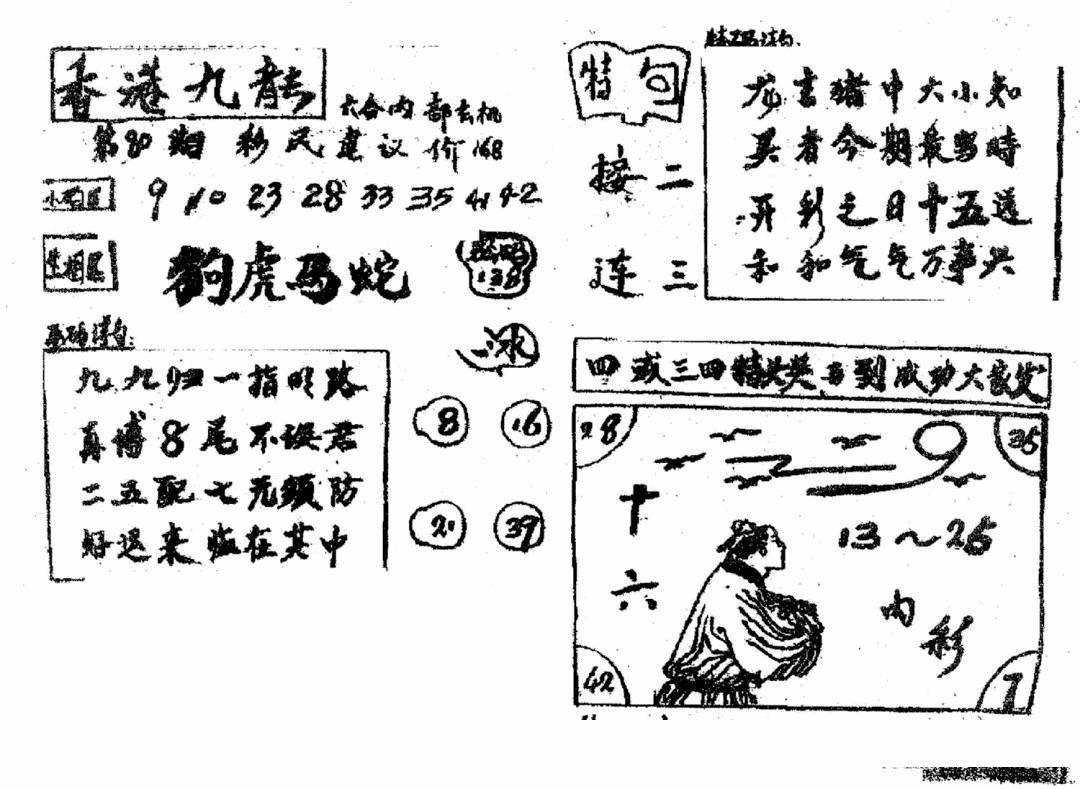 香港九龍
六合内部玄机
第80期 彩民建议价168
9 10 23 28 33 35 41 42
生相
狗虎马蛇
密码
138
冰
九九归一指明路
真博8尾不误君
二五配七充须防
好迟来临在其中
8 16
21 39
特句
接二
连三
龙吉猪中大小知
吴者今期最当時
开彩之日十五送
和和气气万事兴
四或三四特头奖马到成功大家发
28
35
十六
13~25
内彩
42
7